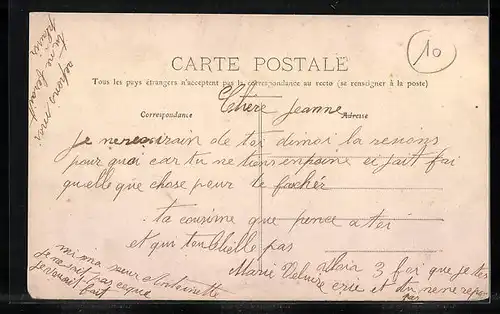 10
CARTE POSTALE
Tous les pays étrangers n'acceptent pas la correspondance au recto (se renseigner à la poste)
Correspondance
Adresse
Chère Jeanne
Je ne rain de toi dimoi la resons
pour quoi car tu ne tiens enpoine ei fait
quelle que chose pour te fachér
ta cousine que pence a toi
et qui toublielle pas
Marie
3 foi que je tes
crie et tu ne ne repon
pas
ni ma sœur Antoinette
Je ne sait pas ce que
fait
repons moi
tu me ferait
plaisir